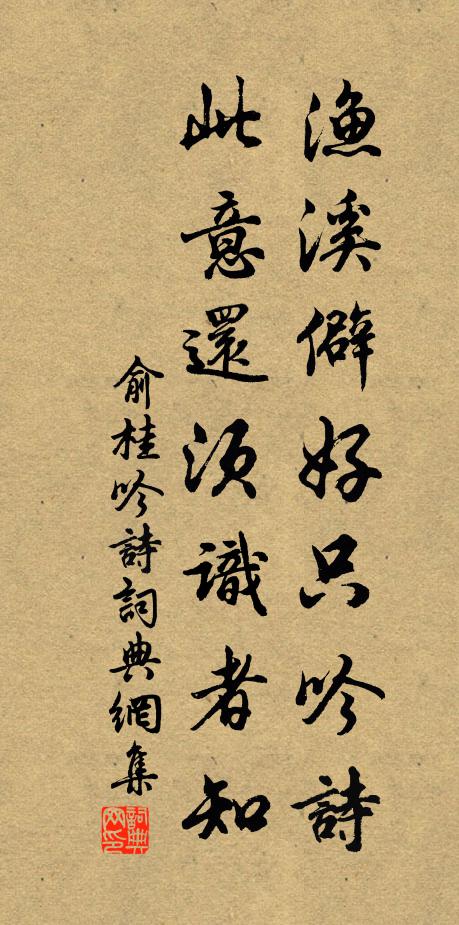 漁溪僻好只吟詩
此意還須識者知
俞桂吟詩詞典網集
詞典網印